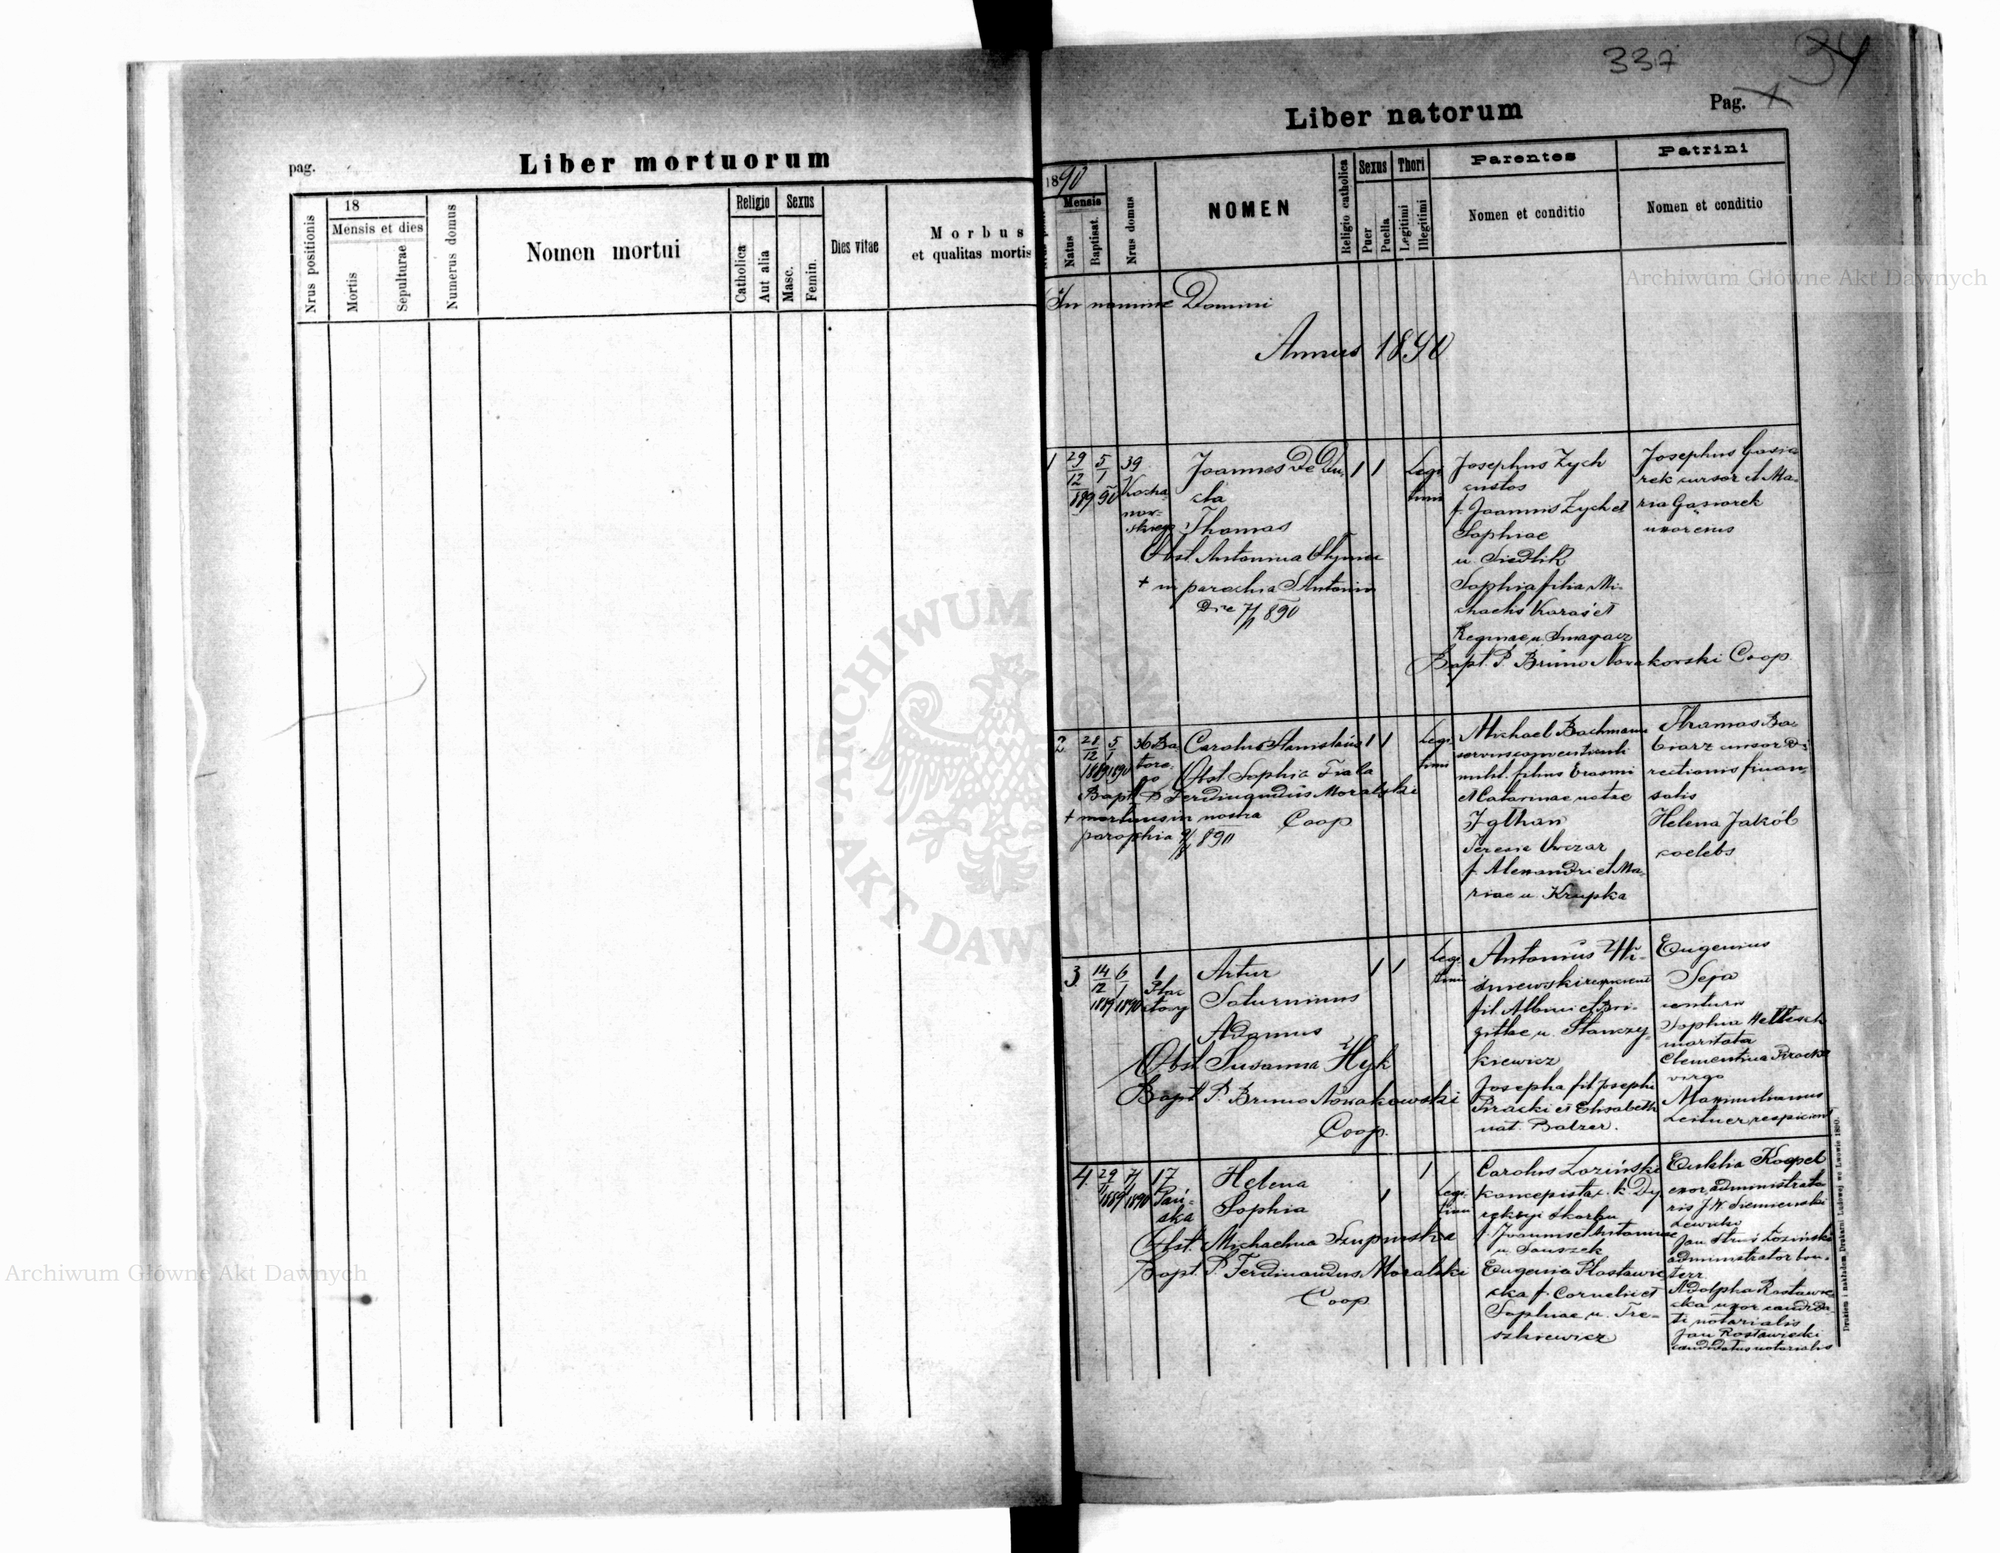 pag.
Liber mortuorum
Nrus positionis
18
Mensis et dies
Mortis
Sepulturae
Numerus domus
Nomen mortui
Religio
Catholica
Aut alia
Sexus
Masc.
Femin.
Dies vitae
Morbus
et qualitas mortis
337
34
Liber natorum
Pag.
1890
Mensis
Natus
Baptisat.
Nrus domus
NOMEN
Religio catholica
Sexus
Puer
Puella
Thori
Legitimi
Illegitimi
Parentes
Nomen et conditio
Patrini
Nomen et conditio
In nomine Domini
Annus 1890
1
29
12
889
5
1
90
39
Kocha
now-
skiego
Joannes De Du-
cla
Thomas
Obst. Antonina
+ in parochia S Antonii
Die 7/1 890
1 1
Legi
timi
Josephus Zych
custos
f. Joannis Zych et
Sophiae
u. Siedlik
Sophia filia Mi-
chaelis Karaś et
Reginae u. Smagacz
Bapt. P. Bruno Nowakowski Coop.
Josephus Gąsio-
rek cursor et Ma-
ria Gąsiorek
uxor eius
2
28
12
1889
5
1
1890
36 Ba
tore-
go
Carolus Stanislaus
Obst. Sophia Fiala
Bapt. P. Ferdinandus Moralski
Coop
+ mortuus in nostra
parochia 9/1 890
1 1
Legi
timi
Michael Bachmann
filius Erasmi
et Catarinae natae
Teresie Owczar
f. Alexandri et Ma-
riae u. Krupka
Thomas Ba-
biarz cursor di
rectionis finan-
satis
Helena Jakób
coelebs
3
14
12
1889
6
1
1890
1
Artur
Saturninus
Adamus
Obst. Susanna Hyk
Bapt P. Bruno Nowakowski
Coop.
1 1
Legi
timi
Antonius Wi-
śniewski
fil. Albini et Bri-
gittae u. Stanczy-
kiewicz
Josepha fil. Josephi
Piracki et Elisabeth
nat. Balzer.
Eugenius
Sophia
maritata
Clementina
virgo
Maximilianus
Leitner respicient
4
29
1889
7
1
1890
17
Pań-
ska
Helena
Sophia
Obst. Michaelina
Bapt. P. Ferdinandus Moralski
Coop
1
1
Legi-
timi
Carolus Łoziński
koncepista c. k. Dy
rekcyi skarbu
f. Joannis et Antoninae
u. Sauszek
Eugenia Rostawie
cka f. Cornelii et
Sophiae u. Tre-
szkiewicz
Eufelia Koppel
uxor administrato
ris J. W. Siemienski
Lewicki
Jan Łoziński
administrator
Adolpha Rostawie
cka uxor candida
ti notarialis
Jan Rostawiecki
candidatus notarialis
Drukiem i nakładem Drukarni Ludowej we Lwowie 1890.
Archiwum Główne Akt Dawnych
Archiwum Główne Akt Dawnych
ARCHIWUM GŁÓWNE AKT DAWNYCH